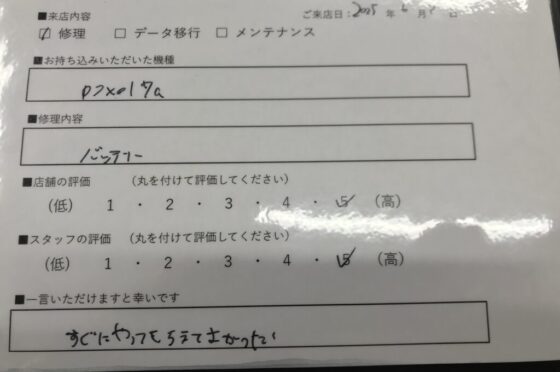 ■来店内容 ご来店日:2025年6月 日
☑ 修理 □ データ移行 □ メンテナンス
■お持ち込みいただいた機種
■修理内容
バッテリー
■店舗の評価 (丸を付けて評価してください)
(低) 1 ・ 2 ・ 3 ・ 4 ・ 5 (高)
■スタッフの評価 (丸を付けて評価してください)
(低) 1 ・ 2 ・ 3 ・ 4 ・ 5 (高)
■一言いただけますと幸いです
すぐにやってもらえてよかった